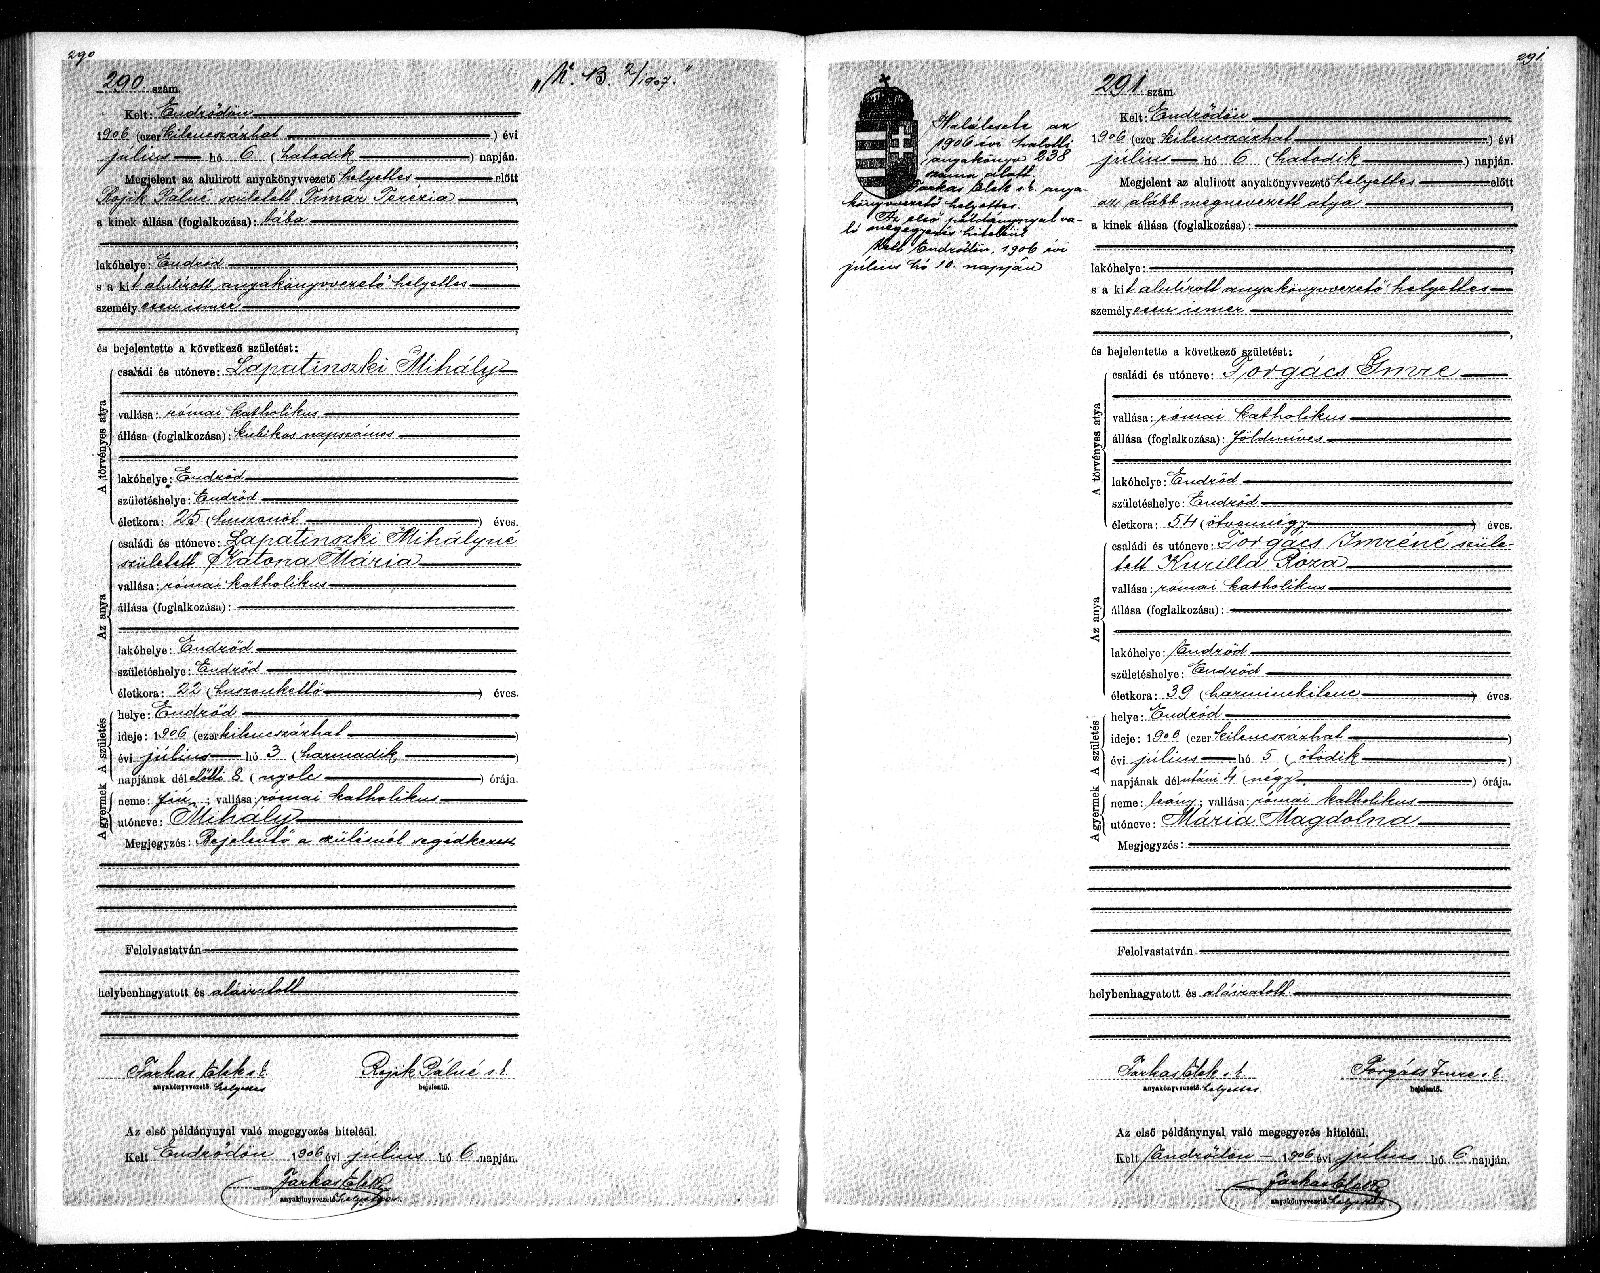 290
290 szám.
"K. B. 2/1907."
Kelt: Endrődön
1906 (ezer kilencszázhat) évi
július hó 6 (hatodik) napján.
Megjelent az alulirott anyakönyvvezető helyettes előtt
Rojik Pálné született Tímár Terézia,
a kinek állása (foglalkozása): bába
lakóhelye: Endrőd,
s a kit alulírott anyakönyvvezető helyettes
személyesen ismer,
és bejelentette a következő születést:
A törvényes atya
családi és utóneve: Lapatinszki Mihály
vallása: római katholikus
állása (foglalkozása): kubikos napszámos
lakóhelye: Endrőd
születéshelye: Endrőd
életkora: 25 (huszonöt) éves.
Az anya
családi és utóneve: Lapatinszki Mihályné
született Katona Mária
vallása: római katholikus
állása (foglalkozása):
lakóhelye: Endrőd
születéshelye: Endrőd
életkora: 22 (huszonkettő) éves.
A gyermek A születés
helye: Endrőd
ideje: 1906 (ezer kilencszázhat)
évi július hó 3 (harmadik)
napjának délelőtti 8 (nyolc) órája.
neme: fiú; vallása: római katholikus
utóneve: Mihály
Megjegyzés: Bejelentő a szülésnél segédkezett
Felolvastatván
helybenhagyatott és aláiratott
Farkas Elek s. k. Rojik Pálné s. k.
anyakönyvvezető helyettes bejelentő.
Az első példánynyal való megegyezés hiteléül.
Kelt Endrődön 1906 évi július hó 6 napján.
Farkas Elek
anyakönyvvezető helyettes
291
291 szám.
Halálesete az
1906 évi halotti
anyakönyv 238
száma alatt.
Farkas Elek s. k. anya-
könyvvezető helyettes.
Az első példánynyal va-
ló megegyezés hiteléül
Kelt Endrődön, 1906 évi
július hó 10. napján
Kelt: Endrődön
1906 (ezer kilencszázhat) évi
július hó 6 (hatodik) napján.
Megjelent az alulirott anyakönyvvezető helyettes előtt
az alább megnevezett atya,
a kinek állása (foglalkozása):
lakóhelye:
s a kit alulírott anyakönyvvezető helyettes
személyesen ismer,
és bejelentette a következő születést:
A törvényes atya
családi és utóneve: Forgács Imre
vallása: római katholikus
állása (foglalkozása): földmíves
lakóhelye: Endrőd
születéshelye: Endrőd
életkora: 54 (ötvennégy) éves.
Az anya
családi és utóneve: Forgács Imréné szüle-
tett Kurilla Roza
vallása: római katholikus
állása (foglalkozása):
lakóhelye: Endrőd
születéshelye: Endrőd
életkora: 39 (harminckilenc) éves.
A gyermek A születés
helye: Endrőd
ideje: 1906 (ezer kilencszázhat)
évi július hó 5 (ötödik)
napjának délutáni 4 (négy) órája.
neme: leány; vallása: római katholikus
utóneve: Mária Magdolna
Megjegyzés:
Felolvastatván
helybenhagyatott és aláiratott
Farkas Elek s. k. Forgács Imre s. k.
anyakönyvvezető helyettes bejelentő.
Az első példánynyal való megegyezés hiteléül.
Kelt Endrődön 1906 évi július hó 6 napján.
Farkas Elek
anyakönyvvezető helyettes